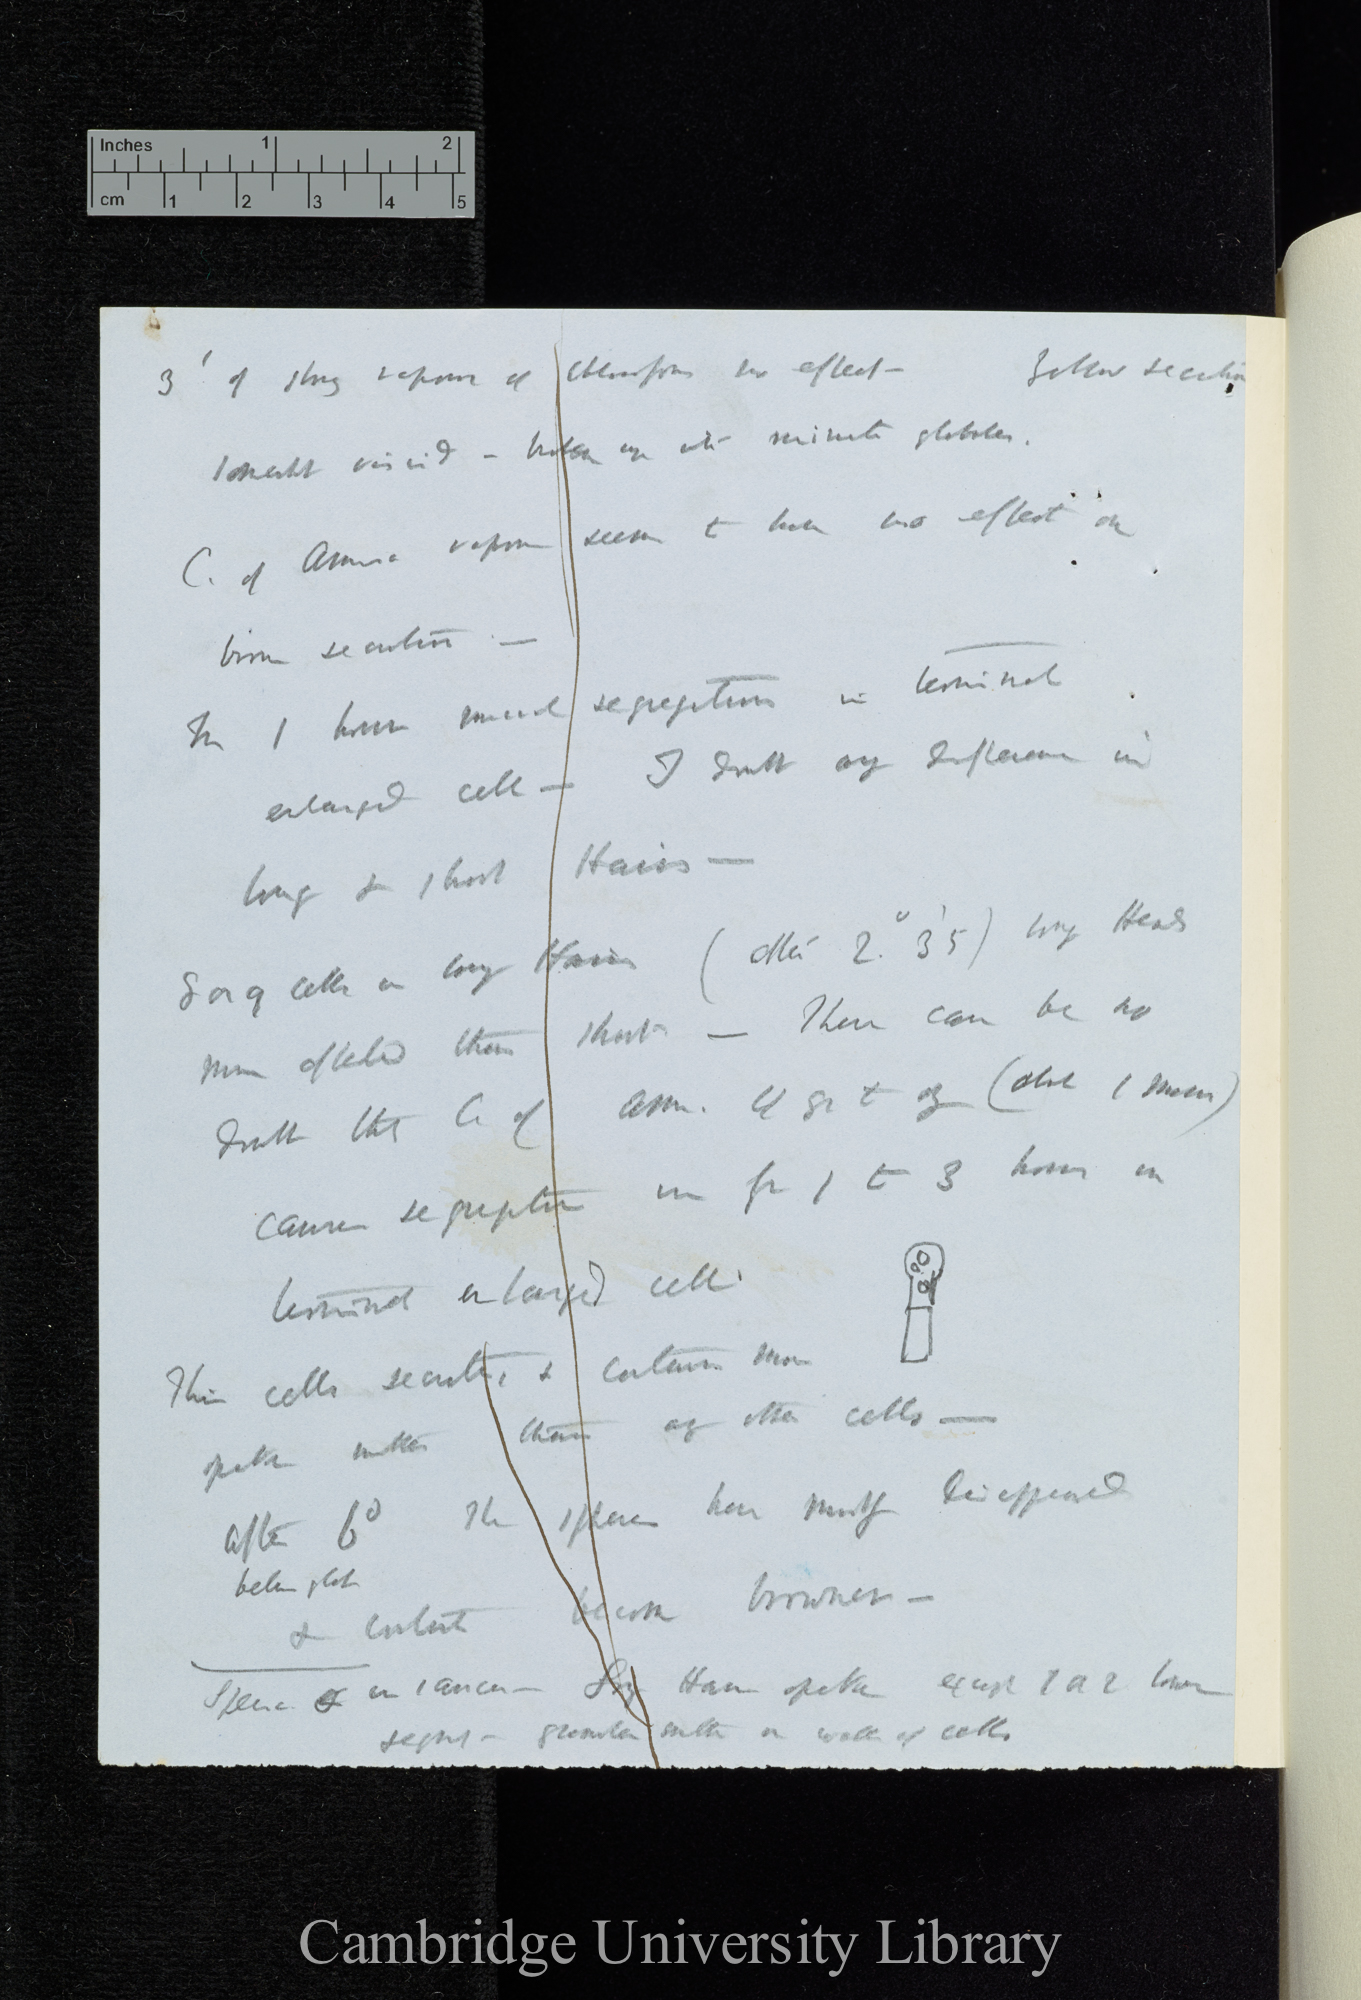 Inches 1 2
cm 1 2 3 4 5
3' of strong vapour of chloroform no effect — Yellow secretion
somewhat viscid — broken up into minute globules.
C. of Ammonia vapour seems to have no effect on
brown secretion —
In 1 hour much segregation in terminal
enlarged cell — I doubt any difference in
long & short Hairs —
8 or 9 cells in long Hairs (after 2° 35') long Heads
more affected than short — There can be no
doubt that C. of Amm. 4 gr to oz (about 1 )
causes segregation in from 1 to 3 hours in
terminal enlarged cell
This cells secrete, & contains more
opake matter than any other cells —
After 6° The spheres have mostly disappeared
& contents become browner —
Hairs opake except 1 or 2 lower
granular matter on walls of cells
Cambridge University Library